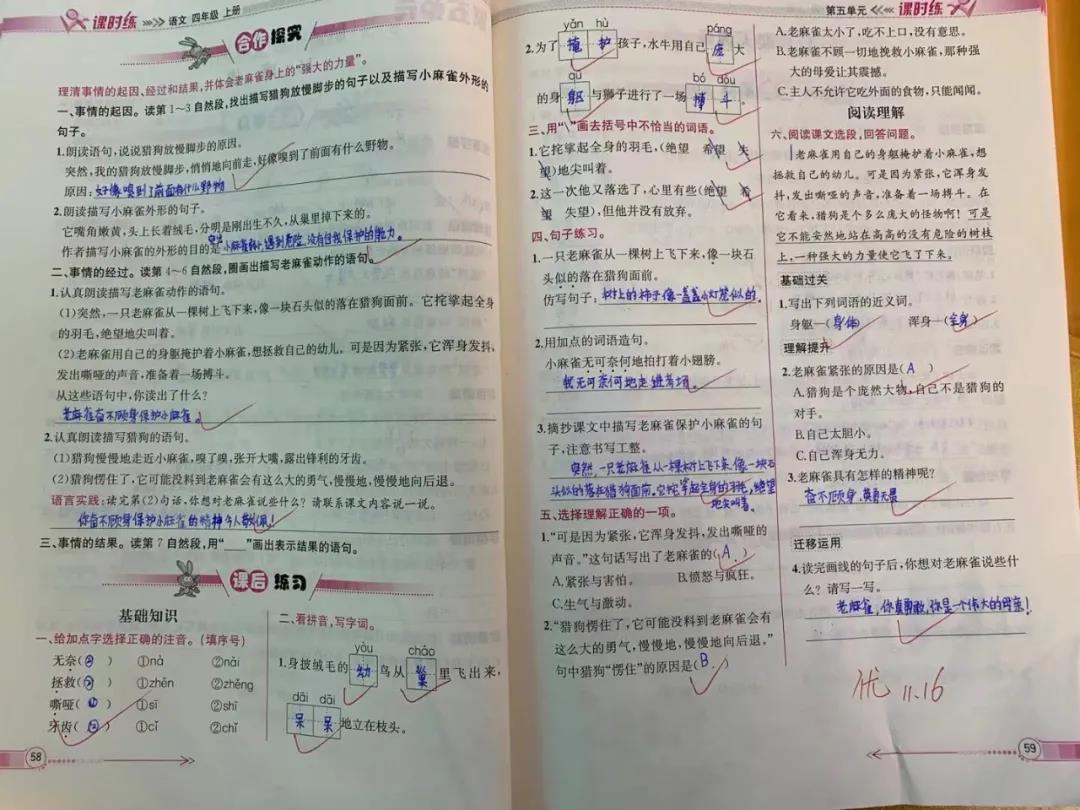 课时练 语文 四年级 上册
合作探究
理清事情的起因、经过和结果,并体会老麻雀身上的“强大的力量”。
一、事情的起因。读第1~3自然段,找出描写猎狗放慢脚步的句子以及描写小麻雀外形的
句子。
1.朗读语句,说说猎狗放慢脚步的原因。
突然,我的猎狗放慢脚步,悄悄地向前走,好像嗅到了前面有什么野物。
原因:好像嗅到了前面有什么野物
2.朗读描写小麻雀外形的句子。
它嘴角嫩黄,头上长着绒毛,分明是刚出生不久,从巢里掉下来的。
作者描写小麻雀的外形的目的是小麻雀小,遇到危险,没有自我保护的能力。
二、事情的经过。读第4~6自然段,圈画出描写老麻雀动作的语句。
1.认真朗读描写老麻雀动作的语句。
(1)突然,一只老麻雀从一棵树上飞下来,像一块石头似的落在猎狗面前。它挓挲起全身
的羽毛,绝望地尖叫着。
(2)老麻雀用自己的身躯掩护着小麻雀,想拯救自己的幼儿。可是因为紧张,它浑身发抖,
发出嘶哑的声音,准备着一场搏斗。
从这些语句中,你读出了什么?
老麻雀奋不顾身保护小麻雀。
2.认真朗读描写猎狗的语句。
(1)猎狗慢慢地走近小麻雀,嗅了嗅,张开大嘴,露出锋利的牙齿。
(2)猎狗愣住了,它可能没料到老麻雀会有这么大的勇气,慢慢地,慢慢地向后退。
语言实践:读完第(2)句话,你想对老麻雀说些什么?请联系课文内容说一说。
你奋不顾身保护小麻雀的精神令人敬佩!
三、事情的结果。读第7自然段,用“____”画出表示结果的语句。
课后练习
基础知识
一、给加点字选择正确的注音。(填序号)
无奈(②) ①nà ②nài
拯救(②) ①zhěn ②zhěng
嘶哑(①) ①sī ②shī
牙齿(②) ①cǐ ②chǐ
58
二、看拼音,写字词。
yòu cháo
1.身披绒毛的幼鸟从巢里飞出来,
dāi dāi
呆呆地立在枝头。
yǎn hù páng
2.为了掩护孩子,水牛用自己庞大
qū bó dòu
的身躯与狮子进行了一场搏斗。
三、用“\”画去括号中不恰当的词语。
1.它挓挲起全身的羽毛,(绝望 希望 失
望)地尖叫着。
2.这一次他又落选了,心里有些(绝望 希
望 失望),但他并没有放弃。
四、句子练习。
1.一只老麻雀从一棵树上飞下来,像一块石
头似的落在猎狗面前。
仿写句子:树上的柿子像一盏盏小灯笼似的。
2.用加点的词语造句。
小麻雀无可奈何地拍打着小翅膀。
我无可奈何地走进考场。
3.摘抄课文中描写老麻雀保护小麻雀的句
子,注意书写工整。
突然,一只老麻雀从一棵树上飞下来,像一块石
头似的落在猎狗面前。它挓挲起全身的羽毛,绝望
地尖叫着。
五、选择理解正确的一项。
1.“可是因为紧张,它浑身发抖,发出嘶哑的
声音。”这句话写出了老麻雀的(A)
A.紧张与害怕。 B.愤怒与疯狂。
C.生气与激动。
2.“猎狗愣住了,它可能没料到老麻雀会有
这么大的勇气,慢慢地,慢慢地向后退。”
句中猎狗“愣住”的原因是(B)
第五单元 课时练
A.老麻雀太小了,吃不上口,没有意思。
B.老麻雀不顾一切地挽救小麻雀,那种强
大的母爱让其震撼。
C.主人不允许它吃外面的食物,只能闻闻。
阅读理解
六、阅读课文选段,回答问题。
老麻雀用自己的身躯掩护着小麻雀,想
拯救自己的幼儿。可是因为紧张,它浑身发
抖,发出嘶哑的声音,准备着一场搏斗。在
它看来,猎狗是个多么庞大的怪物啊!可是
它不能安然地站在高高的没有危险的树枝
上,一种强大的力量使它飞了下来。
基础过关
1.写出下列词语的近义词。
身躯—(身体) 浑身—(全身)
理解提升
2.老麻雀紧张的原因是(A)
A.猎狗是个庞然大物,自己不是猎狗的
对手。
B.自己太胆小。
C.自己浑身无力。
3.老麻雀具有怎样的精神呢?
奋不顾身,英勇无畏
迁移运用
4.读完画线的句子后,你想对老麻雀说些什
么?请写一写。
老麻雀,你真勇敢,你是一个伟大的母亲!
优 11.16
59